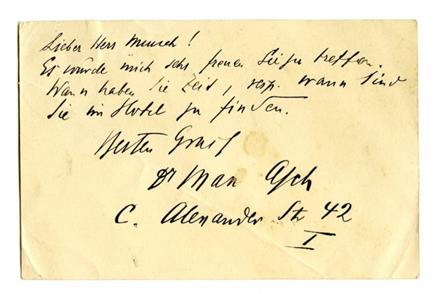 Lieber Herr Munch!
Es würde mich sehr freuen Sie zu treffen.
Wann haben Sie Zeit, resp. wann sind
Sie im Hotel zu finden.
Besten Gruß
Dr Max Asch
C. Alexander Str 42
I